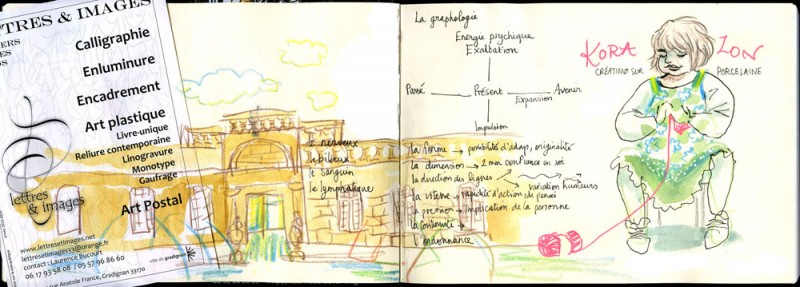 TTRES & IMAGES
ERS
ES
OS
Calligraphie
Enluminure
Encadrement
Art plastique
Livre-unique
Reliure contemporaine
Linogravure
Monotype
Gaufrage
Art Postal
lettres
& images
www.lettresetimages.net
lettresetimages33@orange.fr
contact : Laurence Bucourt
06 17 93 58 08 / 05 57 96 86 60
Anatole France, Gradignan 33170
ville de gradignan
le nerveux
le bilieux
le sanguin
le lymphatique
La graphologie
Energie psychique
Exaltation
Passé Présent Avenir
Expansion
Impulsion
la forme → possibilités d'adap, originalité
la dimension → confiance en soi
la direction des lignes
variation humeurs
la vitesse → rapidité d'action de pensée
la pression → implication de la personne
la continuité →
l'ordonnance
KORA ZON
CRÉATIONS SUR PORCELAINE